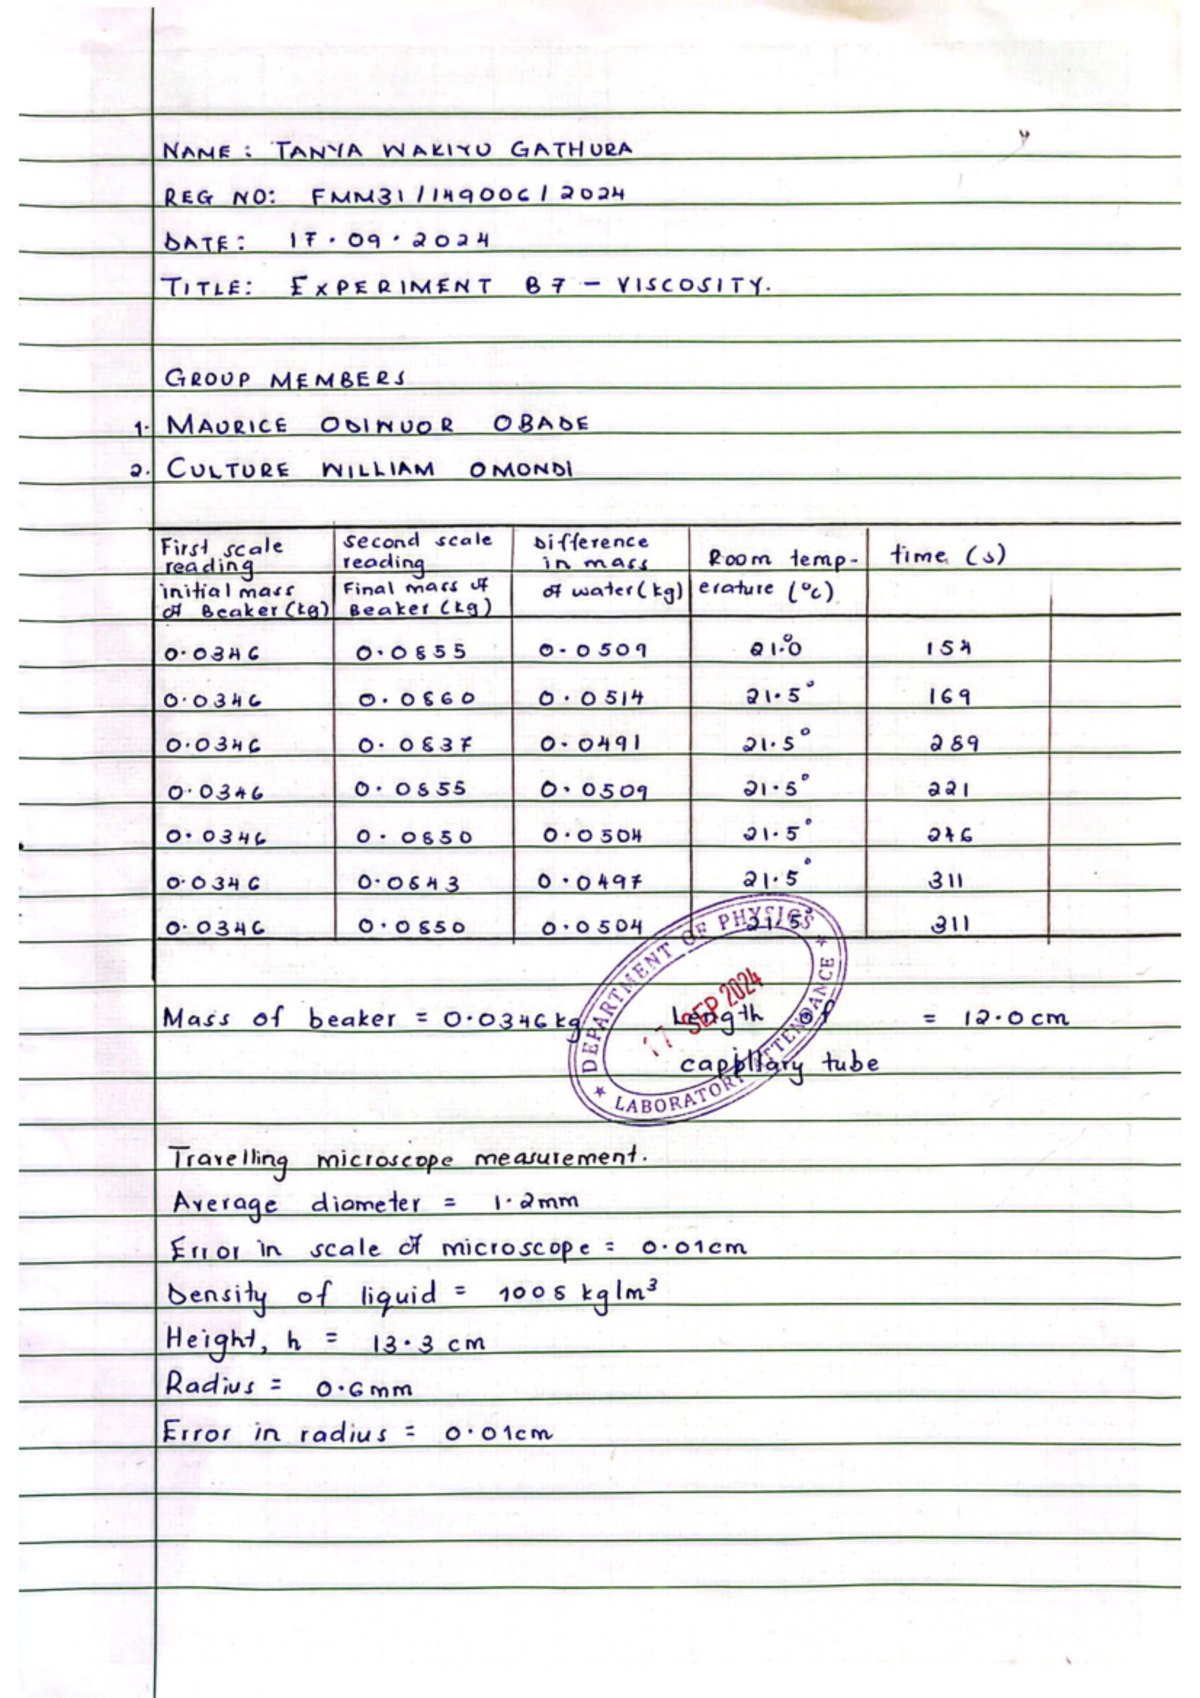 NAME: TANYA WAKIYU GATHURA
REG NO: FMM31/149006/2024
DATE: 17.09.2024
TITLE: EXPERIMENT B7 – VISCOSITY.
GROUP MEMBERS
1. MAURICE ODINUOR OBADE
2. CULTURE WILLIAM OMONDI
First scale reading second scale reading Difference in mass Room temp- time (s)
initial mass of Beaker (kg) Final mass of Beaker (kg) of water (kg) erature (°c)
0.0346 0.0855 0.0509 21.0° 154
0.0346 0.0860 0.0514 21.5° 169
0.0346 0.0837 0.0491 21.5° 289
0.0346 0.0855 0.0509 21.5° 221
0.0346 0.0850 0.0504 21.5° 246
0.0346 0.0843 0.0497 21.5° 311
0.0346 0.0850 0.0504 21.5° 311
DEPARTMENT OF PHYSICS
17 SEP 2024
LABORATORY ATTENDANCE
Mass of beaker = 0.0346 kg Length of = 12.0 cm
cappillary tube
Travelling microscope measurement.
Average diameter = 1.2mm
Error in scale of microscope = 0.01cm
Density of liquid = 1008 kg/m³
Height, h = 13.3 cm
Radius = 0.6mm
Error in radius = 0.01cm